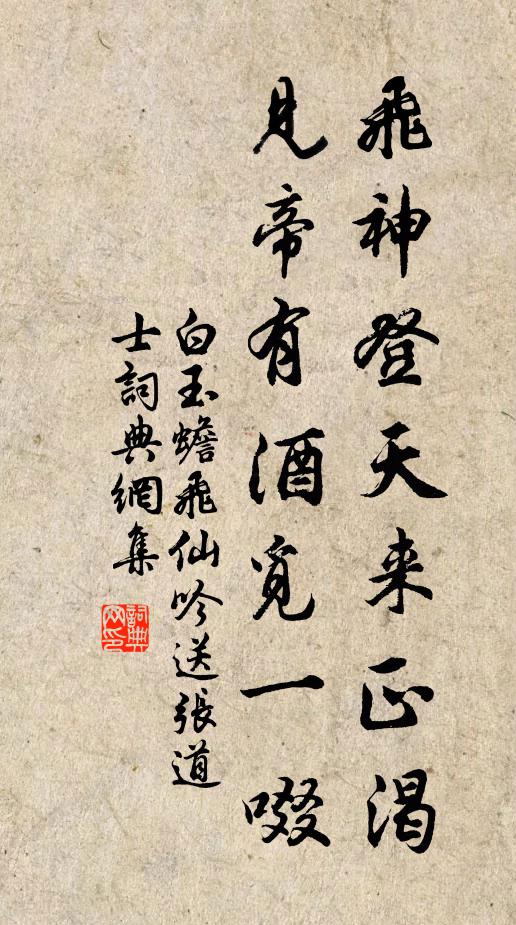 飛神登天来正渴
見帝有酒覓一啜
白玉蟾飛仙吟送張道
士詞典網集
詞典网印